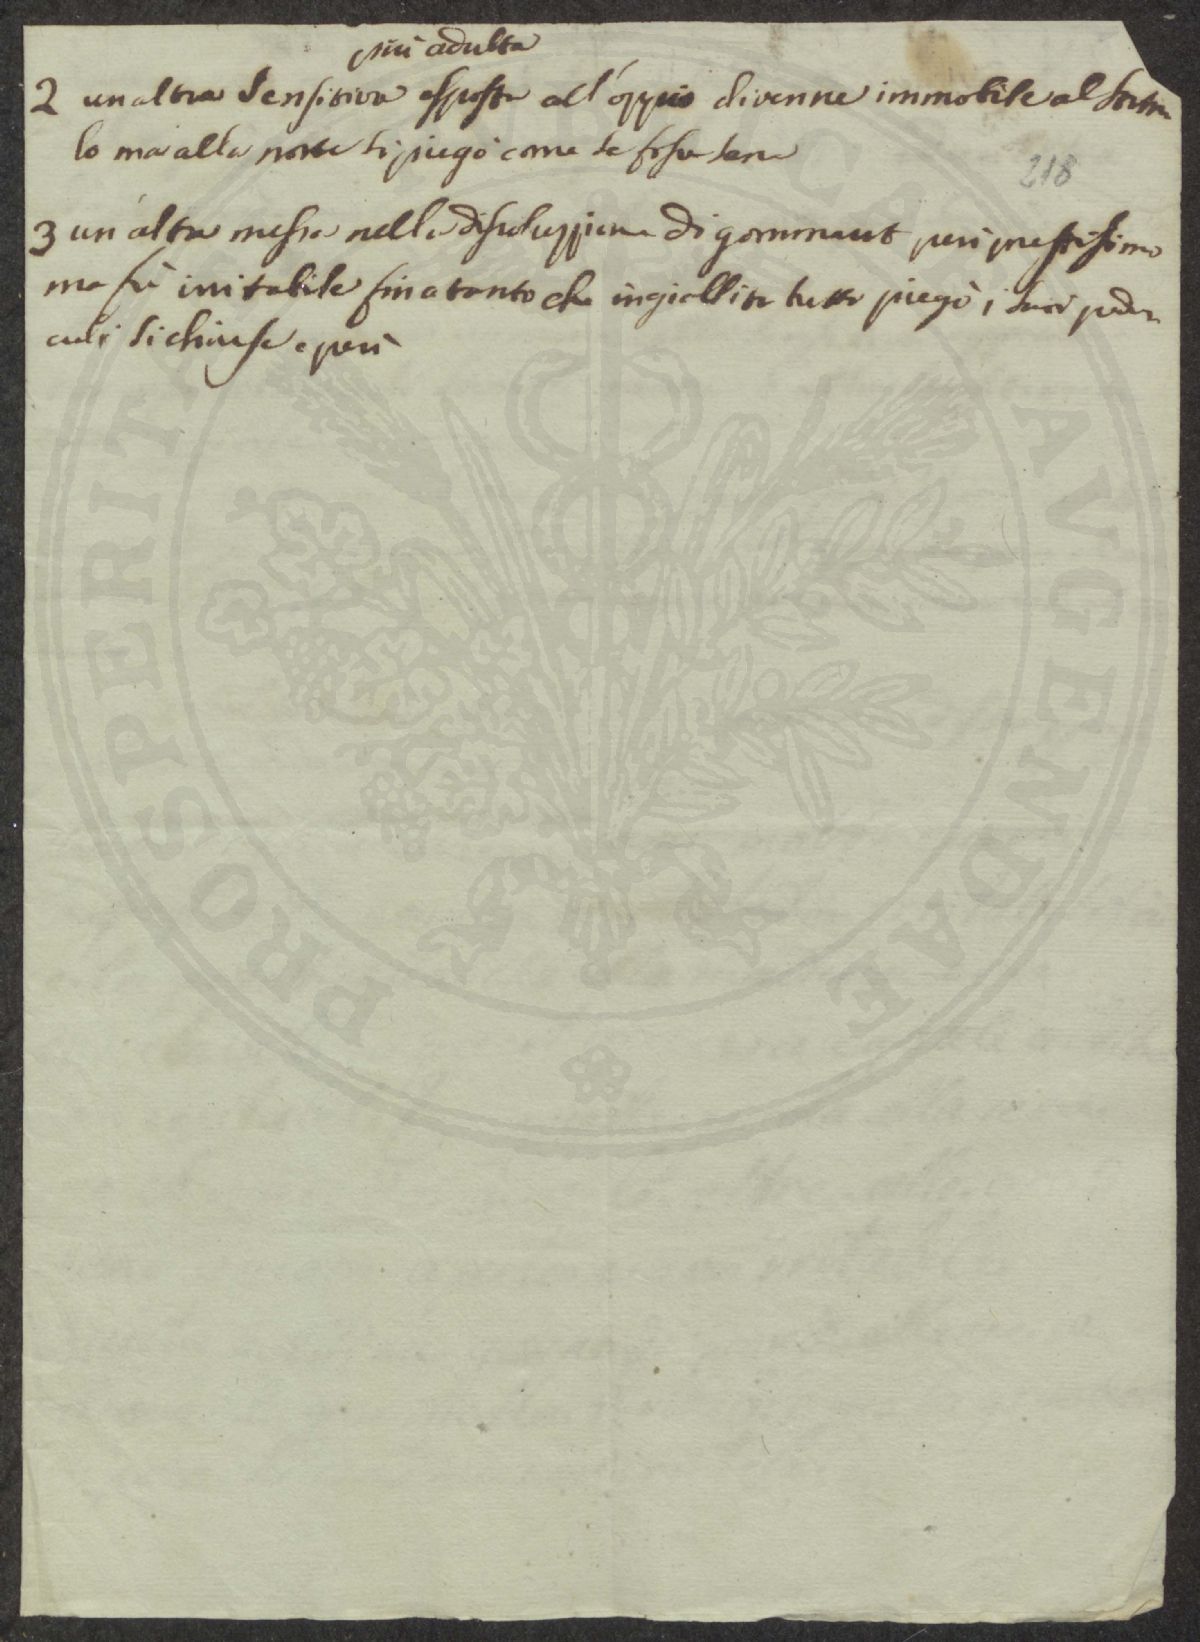 più adulta
2 un altra Sensitiva esposta all'oppio divenne immobile al Stimu
lo ma alla notte si piegò come se fosse sana
218
3 un altra messa nella dissoluzzione di gommaut perì prestissimo
ma fù irritabile fin a tanto che ingiallita tutta piegò i suoi pedun
culi si chiuse e perì
PROSPERITATI PUBLICAE AVGENDAE